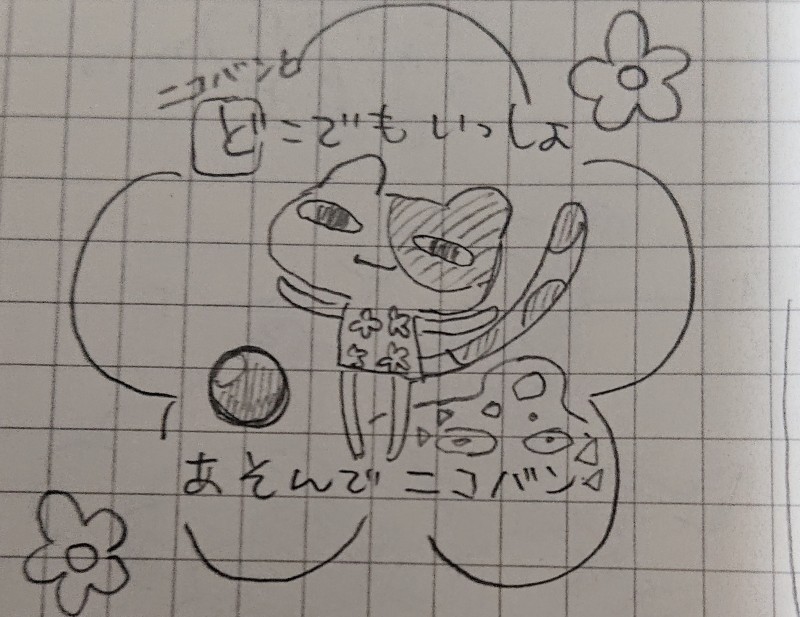 ニコバンの
どこでもいっしょ
あそんでニコバン